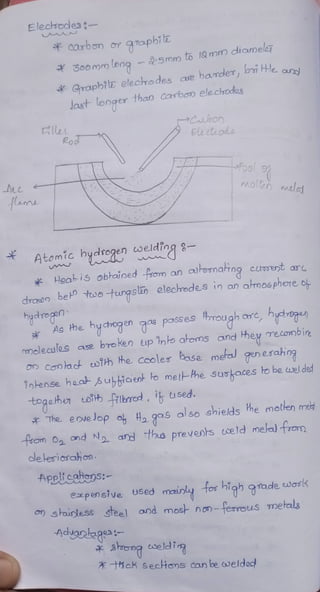 Electrodes:-
* carbon or graphite
* 300mm long - 2.5mm to 12mm diameter
* Graphite electrodes are harder, brittle and
last longer than carbon electrodes
Filler
Rod
Carbon
Electrode
Arc
flame
pool of
molten metal
* Atomic hydrogen welding :-
* Heat is obtained from an alternating current arc
drawn betn two tungsten electrodes in an atmosphere of
hydrogen.
* As the hydrogen gas passes through arc, hydrogen
molecules are broken up into atoms and they recombine
on contact with the cooler base metal generating
intense heat sufficient to melt the surfaces to be welded
together with filler rod, if used.
* The envelop of H2 gas also shields the molten metal
from O2 and N2 and thus prevents weld metal from
deterioration.
Applications:-
expensive used mainly for high grade work
on stainless steel and most non-ferrous metals
Advantages:-
* strong welding
* thick sections can be welded